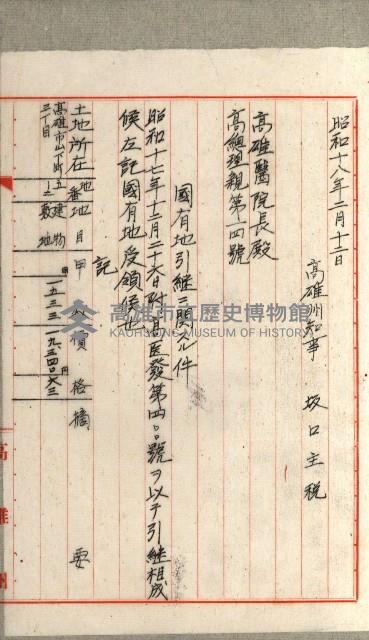 昭和十八年二月十二日
高雄州知事 坂口主税
高雄醫院長殿
高總理親第一四號
國有地引継ニ関スル件
昭和十七年十二月二十六日附高医發第四〇號ヲ以テ引継相成
候左記國有地受領候也
記
土地所在 地番 地目 甲 價格 摘要
高雄市山下町三丁目 五ノ三 建物敷地 一五三三 一九三四〇六三
高雄市立歷史博物館
KAOHSIUNG MUSEUM OF HISTORY
高雄州